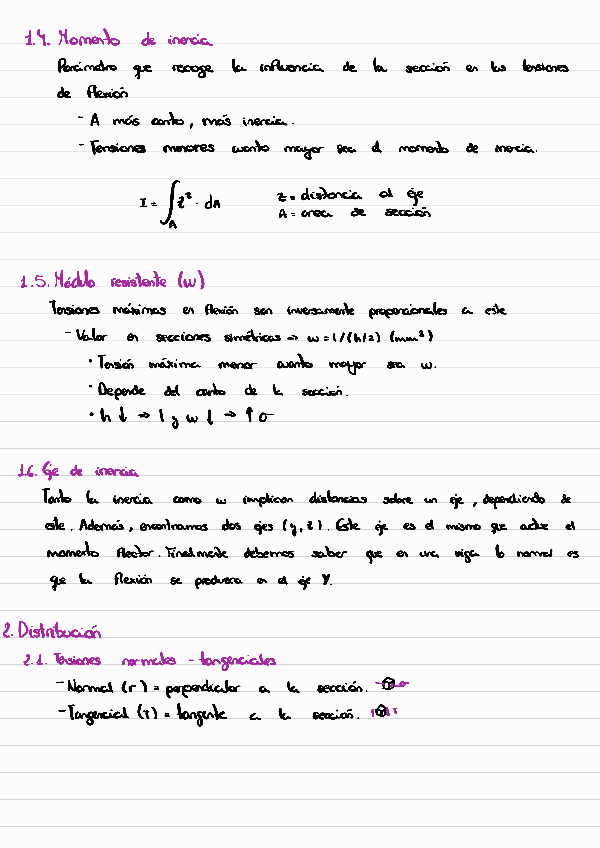 1.4. Momento de inercia
Parámetro que recoge la influencia de la sección en las tensiones
de flexión
- A más canto, más inercia.
- Tensiones menores cuanto mayor sea el momento de inercia.
I = ∫A z² · dA
z = distancia al eje
A = area de sección
1.5. Módulo resistente (w)
Tensiones máximas en flexión son inversamente proporcionales a este
- Valor en secciones simétricas → w = I/(h/2) (mm³)
• Tensión máxima menor cuanto mayor sea w.
• Depende del canto de la sección.
• h ↓ → I y w ↓ → ↑ σ
1.6. Eje de inercia
Tanto la inercia como w implican distancias sobre un eje, dependiendo de
este. Además, encontramos dos ejes (y, z). Este eje es el mismo que actue el
momento flector. Finalmente debemos saber que en una viga lo normal es
que la flexión se produzca en el eje Y.
2. Distribución
2.1. Tensiones normales - tangenciales
- Normal (σ) = perpendicular a la sección. σ
- Tangencial (τ) = tangente a la sección. τ